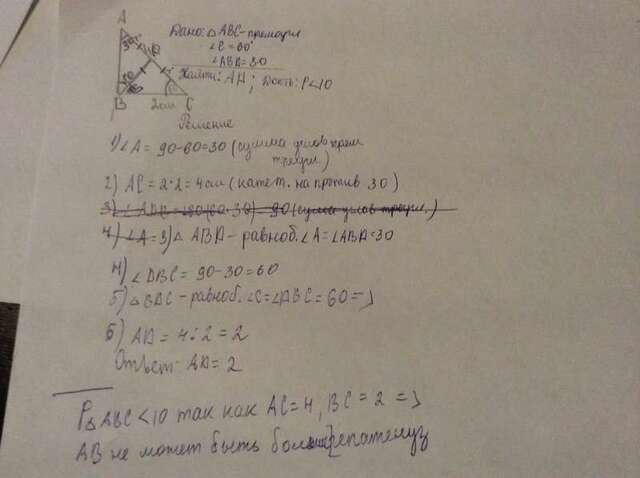 A
30°
D
B
2см
C
Дано: △ABC-прямоуг
∠C=60°
∠ABD=30
Найти: AD; Док-ть: P<10
Решение
1) ∠A = 90-60=30 (сумма углов прям треуг.)
2) AC = 2·2 = 4см (катет. на против 30)
3) △ ABD - равноб. ∠A = ∠ABD=30
4) ∠DBC = 90-30=60
5) △BDC - равноб. ∠C=∠ABC = 60 =>
6) AD = 4:2 = 2
Ответ: AD = 2
P△ABC <10 так как AC=4, BC = 2 =>
AB не может быть больше гепатенуз